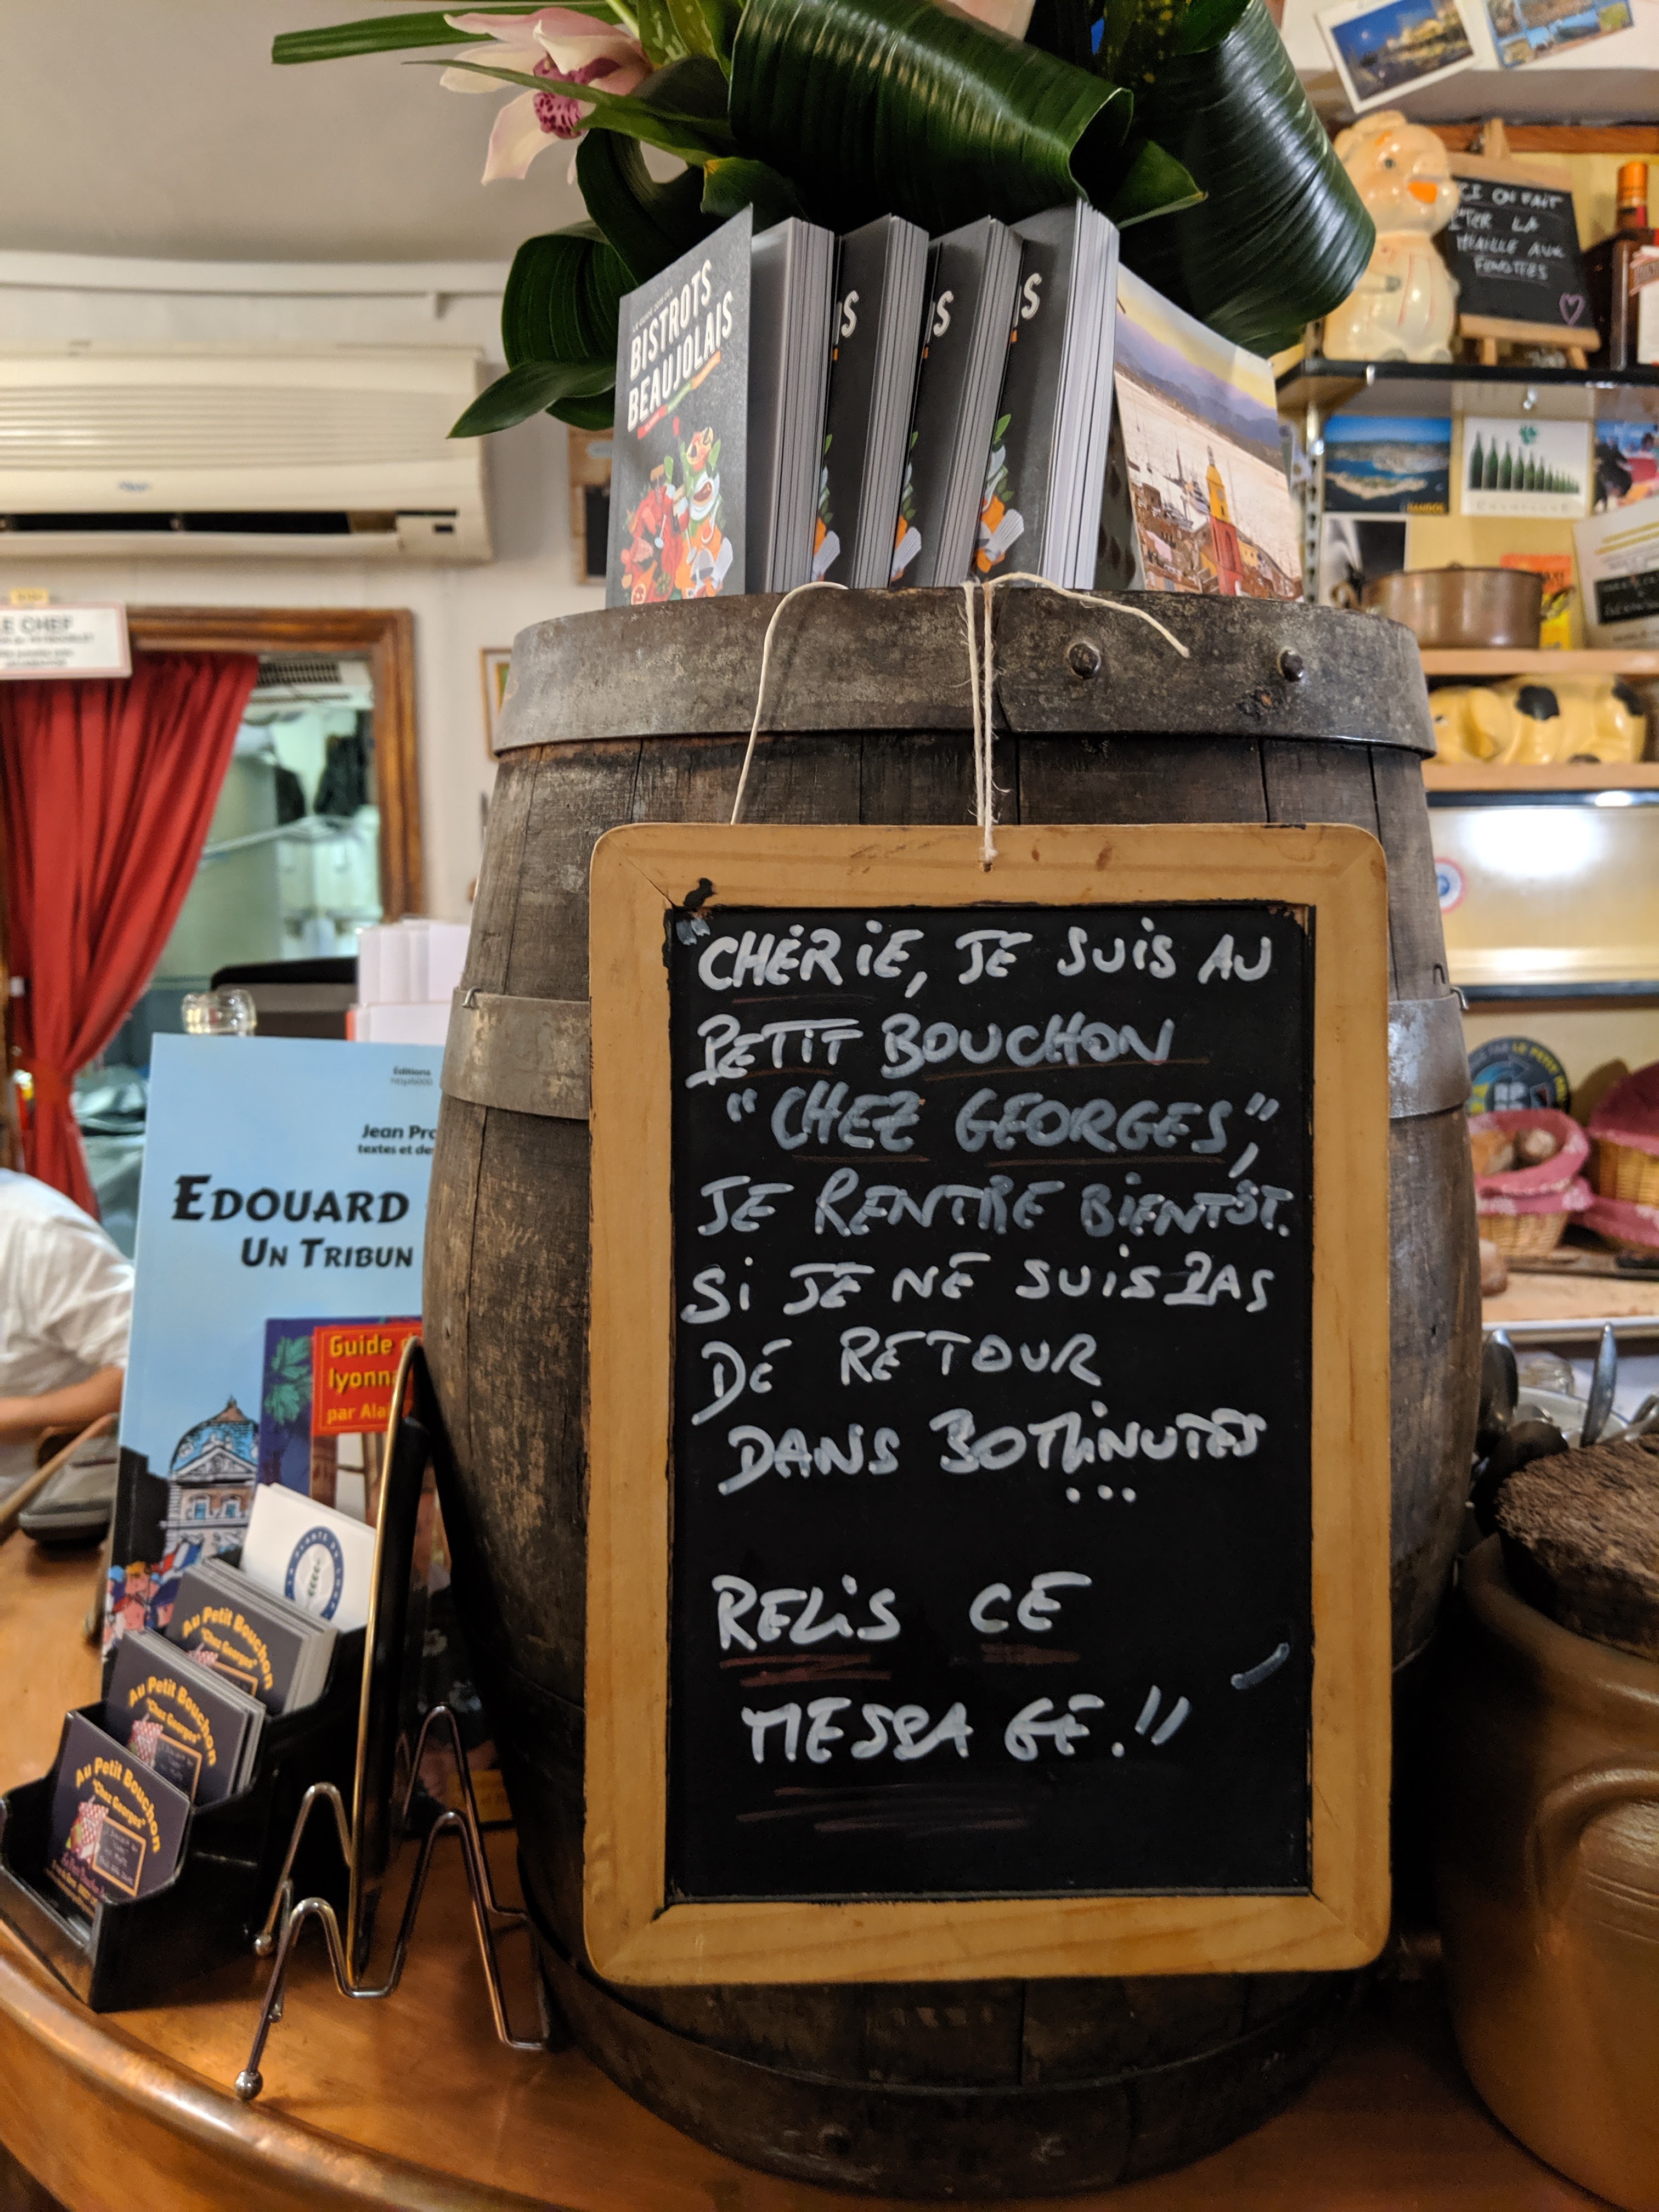 BISTROTS
BEAUJOLAIS
S
S
S
LA
BANDOL
CHAMPAGNE
LE CHEF
CHÉRIE, JE SUIS AU
PETIT BOUCHON
"CHEZ GEORGES",
JE RENTRE BIENTÔT.
SI JE NE SUIS PAS
DE RETOUR
DANS 30 MINUTES
...
RELIS CE
MESSAGE.!!
Éditions
Jean Pro
textes et de
EDOUARD
UN TRIBUN
Guide d
lyonna
par Ala
Au Petit Bouchon
"Chez Georges"
Au Petit Bouchon
"Chez Georges"
Au Petit Bouchon
"Chez Georges"